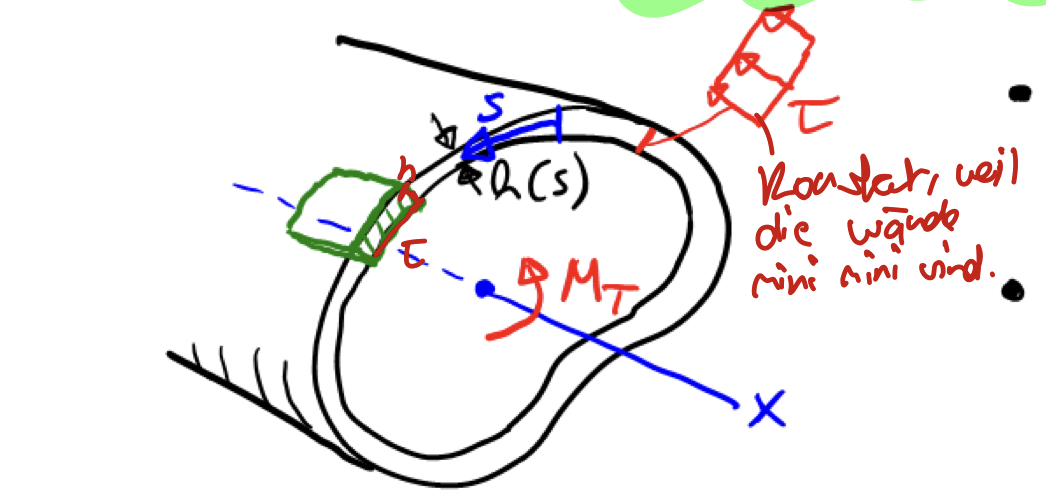 s
h(s)
τ
h
τ
Konstant, weil
die Wände
mini mini sind.
M_T
x